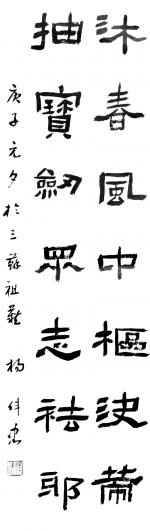 沐春風中樞決策
抽寶劍眾志祛邪
庚子元夕於三蘇祖籍 楊